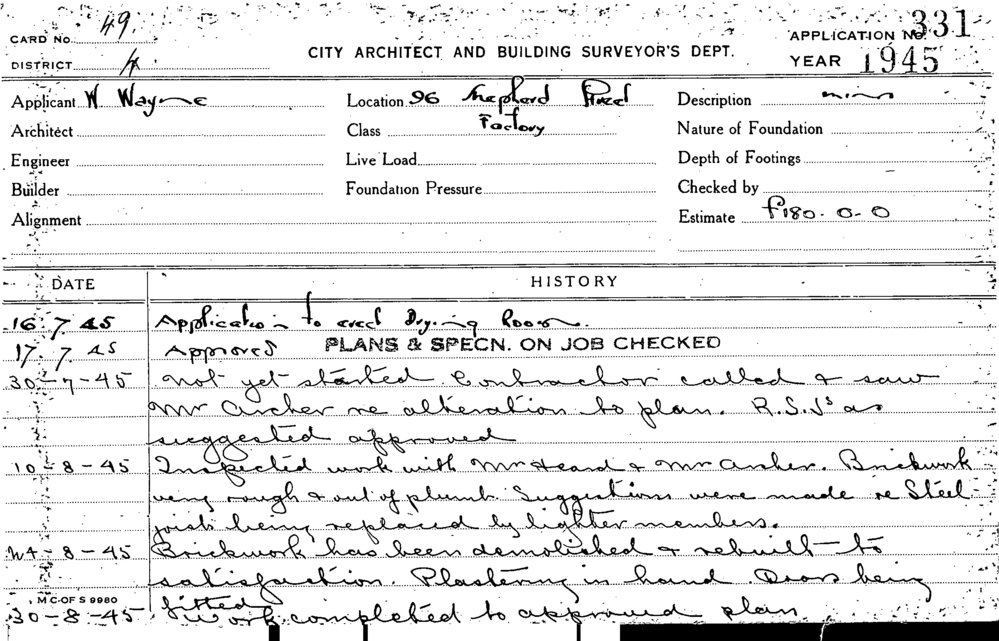 CARD No. 49.
APPLICATION No. 331
CITY ARCHITECT AND BUILDING SURVEYOR'S DEPT.
DISTRICT 4
YEAR 1945
Applicant W Wayne Location 96 Shepherd Street Description minor
Architect Class Factory Nature of Foundation
Engineer Live Load Depth of Footings
Builder Foundation Pressure Checked by
Alignment Estimate £180.0.0
DATE HISTORY
16.7.45 Application to erect Drying Room.
17.7.45 Approved PLANS & SPECN. ON JOB CHECKED
30-7-45 Not yet started Contractor called & saw
Mr Archer re alteration to plan. R.S.Js as
suggested approved
10-8-45 Inspected work with Mr Heard & Mr Archer. Brickwork
very rough & out of plumb. Suggestions were made re Steel
joists being replaced by lighter members.
24-8-45 Brickwork has been demolished & rebuilt to
satisfaction. Plastering in hand. Doors being
fitted
M C OF S 9980
30-8-45 Work completed to approved plan